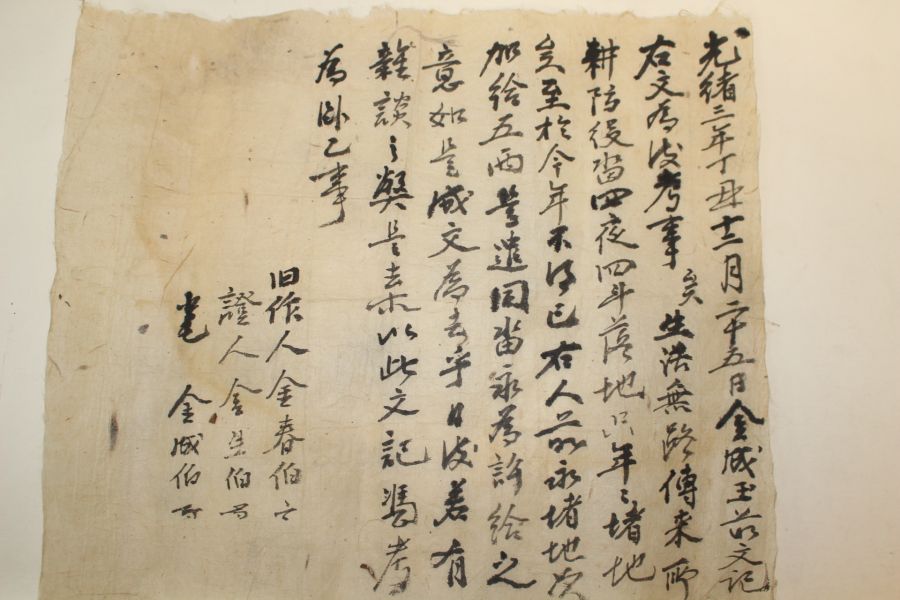 光緒三年丁丑十二月二十五日金成玉前文記
右文為後考事矣生活無路傳來所
耕防役畓四夜四斗落地只年〻堵地
矣至於今年不得已右人前永堵地次
加給五両是遣同畓永為許給之
意如是成文為去乎日後若有
雜談之弊是去等以此文記憑考
為臥乙事
旧作人金春伯
證人金 伯
筆 金成伯